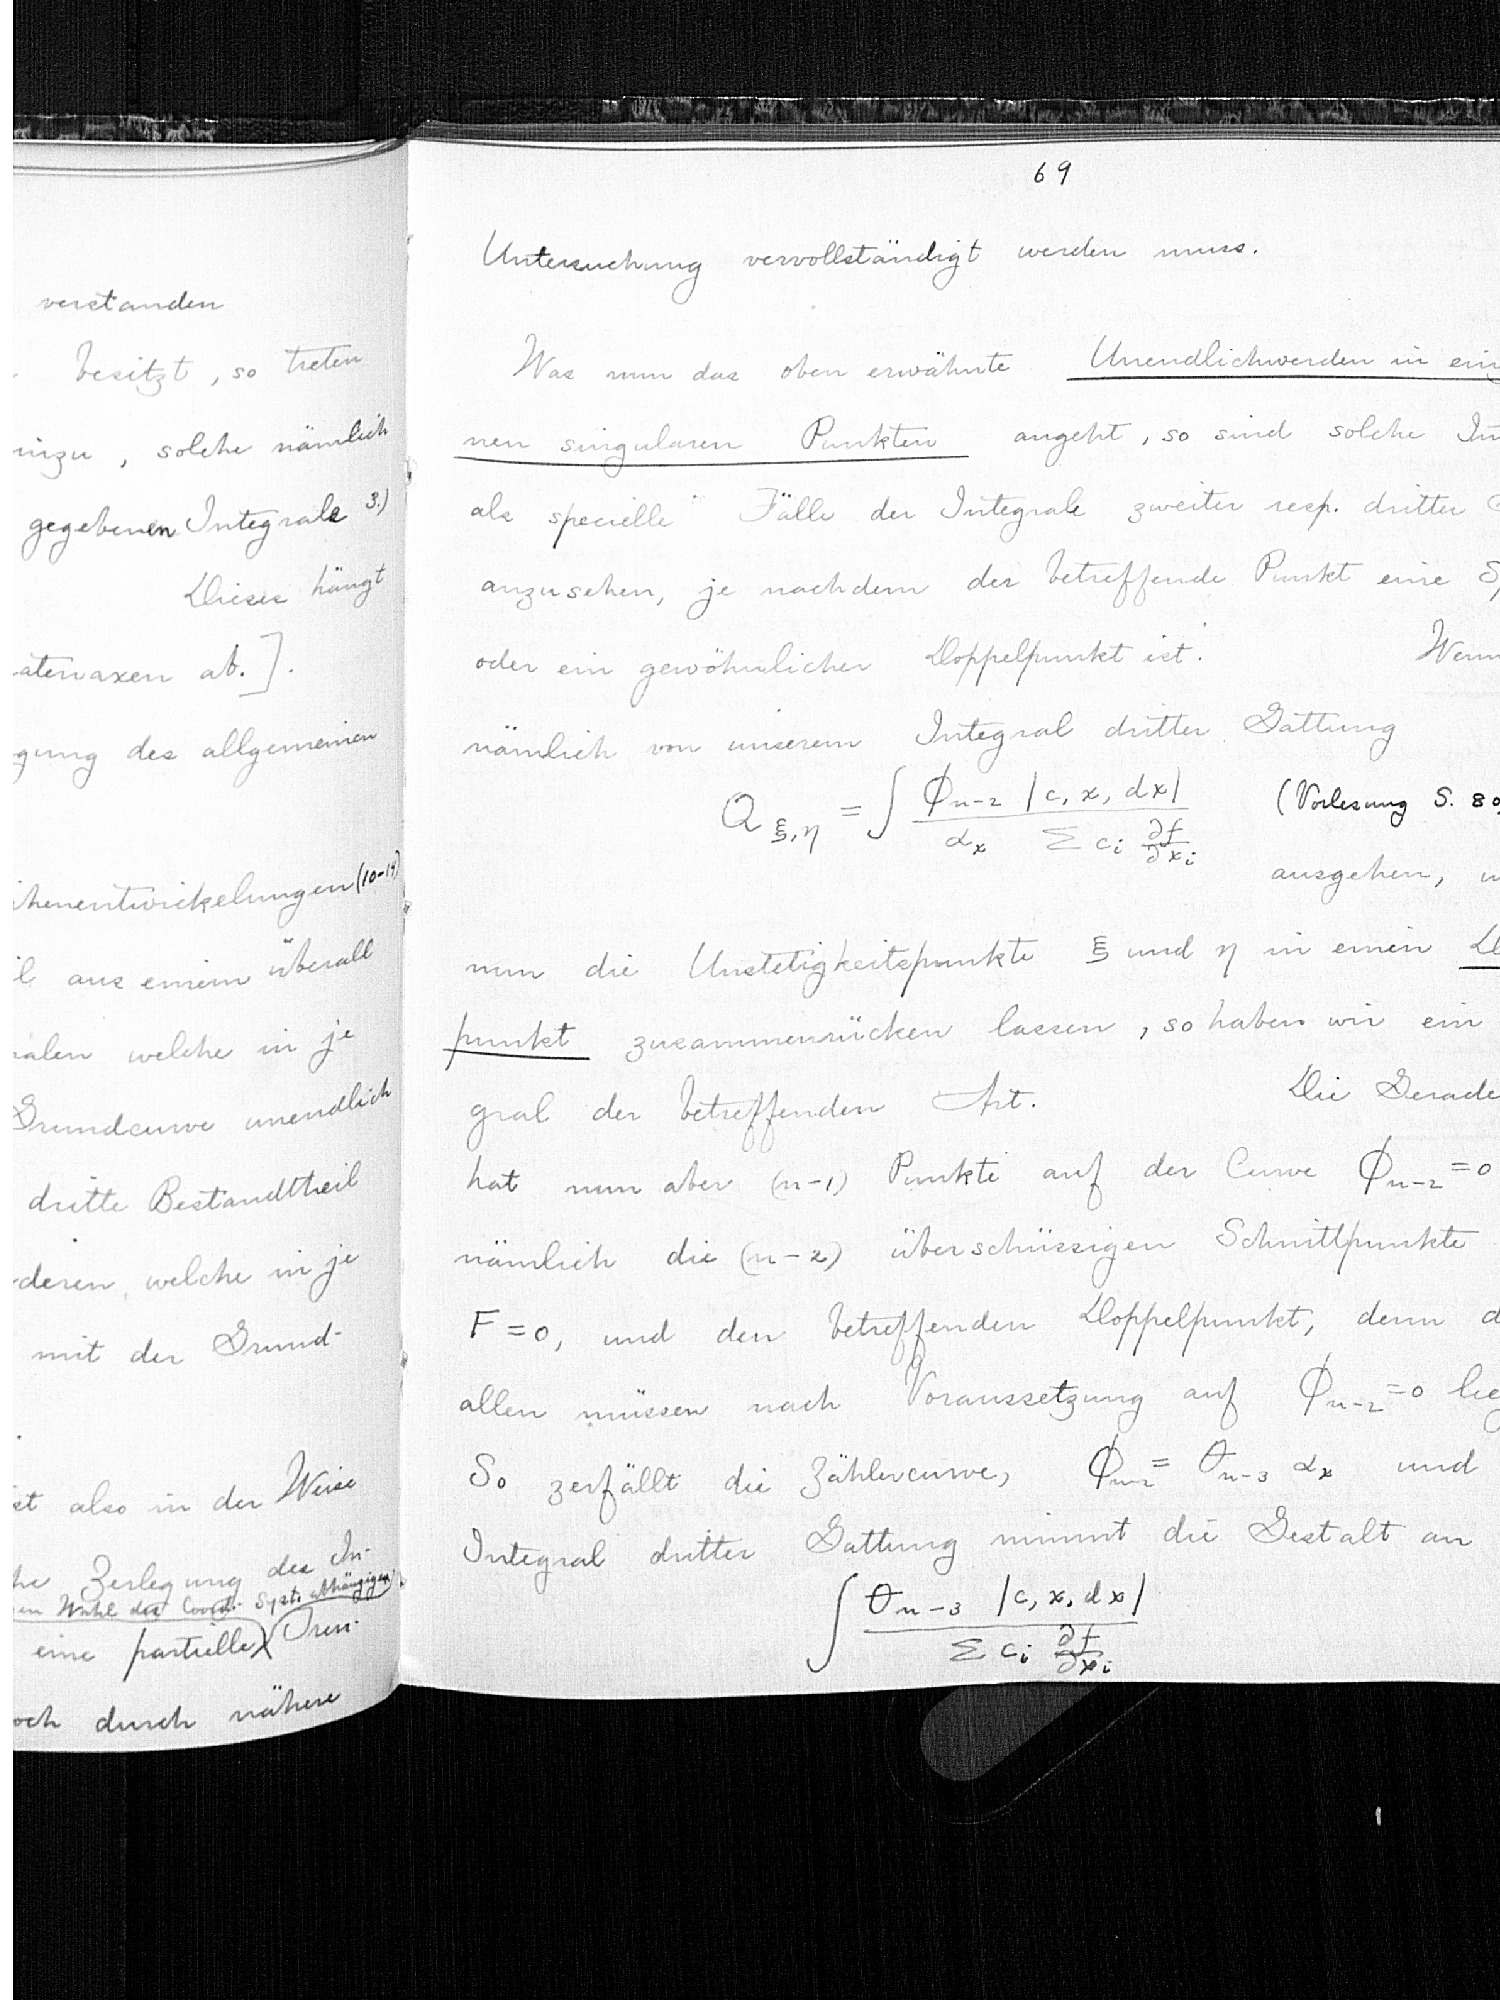 verstanden
besitzt, so treten
hinzu, solche nämlich
gegebenen Integrals 3.)
Dieses hängt
atenaxen ab.].
gung des allgemeinen
ihenentwickelungen (10-14)
l aus einem überall
alen welche in je
Grundcurve unendlich
dritte Bestandtheil
deren, welche in je
mit der Grund-
st also in der Weise
he Zerlegung des In-
en Wahl des Coord. Syst. abhängigen
eine partielle) Tren-
och durch nähere
69
Untersuchung vervollständigt werden muss.
Was nun das oben erwähnte Unendlichwerden in ein
nen singularen Punkten angeht, so sind solche In
als specielle Fälle der Integrale zweiter resp. dritter G
anzusehen, je nachdem der betreffende Punkt eine Sp
oder ein gewöhnlicher Doppelpunkt ist. Wenn
nämlich von unserem Integral dritter Gattung
Q ξ,η = ∫ ϕn-2 |c, x, dx| / αx Σ ci ∂f/∂xi (Vorlesung S. 80
ausgehen, u
nun die Unstetigkeitspunkte ξ und η in einen Do
punkt zusammenrücken lassen, so haben wir ein
gral der betreffenden Art. Die Gerade
hat nun aber (n-1) Punkte auf der Curve ϕn-2 = 0
nämlich die (n-2) überschüssigen Schnittpunkte
F = 0, und den betreffenden Doppelpunkt, denn d
allen müssen nach Voraussetzung auf ϕn-2 = 0 lieg
So zerfällt die Zählercurve, ϕn-2 = θn-3 αx und
Integral dritter Gattung nimmt die Gestalt an
∫ θn-3 |c, x, dx| / Σ ci ∂f/∂xi